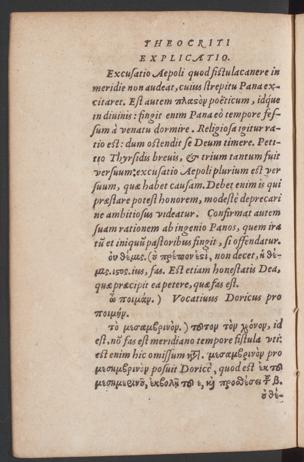 THEOCRITI
EXPLICATIO.
Excusatio Aepoli quod fistula canere in
meridie non audeat, cuius strepitu Pana ex-
citaret. Est autem πλασὸν poëticum, idque
in diuinis: fingit enim Pana eo tempore fes-
sum à venatu dormire. Religiosa igitur ra-
tio est: dum ostendit se Deum timere. Peti-
tio Thyrsidis breuis, & trium tantum fuit
versuum: excusatio Aepoli plurium est ver
suum, quæ habet causam. Debet enim is qui
præstare potest honorem, modestè deprecari
ne ambitiosus videatur. Confirmat autem
suam rationem ab ingenio Panos, quem ira
tũ et iniquũ pastoribus fingit, si offendatur.
οὐ θέμις. (ὃ πρέπον ἐςὶ, non decet, ἢ θέ-
μις. ιςος. ius, fas. Est etiam honestatis Dea,
quæ præcipit ea petere, quæ fas est.
ὦ ποιμάν.) Vocatiuus Doricus pro
ποιμήν.
τὸ μεσαμβρινὸν.) τοῦτον τὸν χρόνον, id
est. nō fas est meridiano tempore fistula vti:
est enim hic omissum μεσαμβρινὸν pro
μεσημβρινὸν posuit Doricè, quod est ἐκ τοῦ
μεσημερινοῦ, ἐκβολῇ τοῦ ε, καὶ προθέσει τοῦ β.
ὁ θέ-